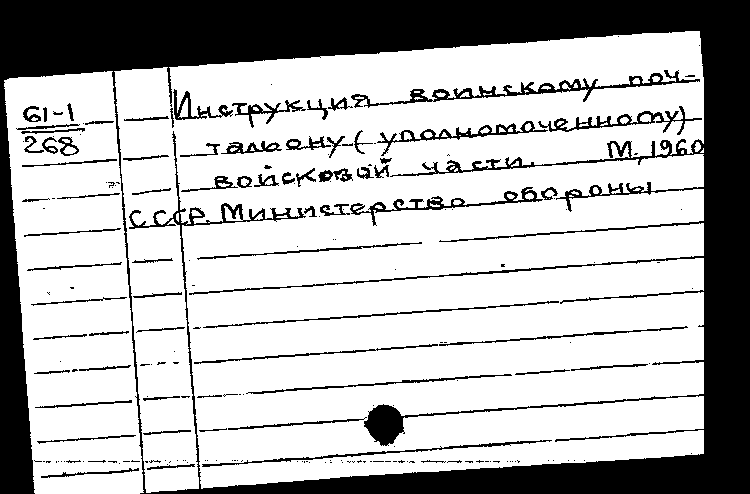 61-1
268
Инструкция воинскому поч-
тальону (уполномоченному)
войсковой части. М, 1960
СССР. Министерство обороны